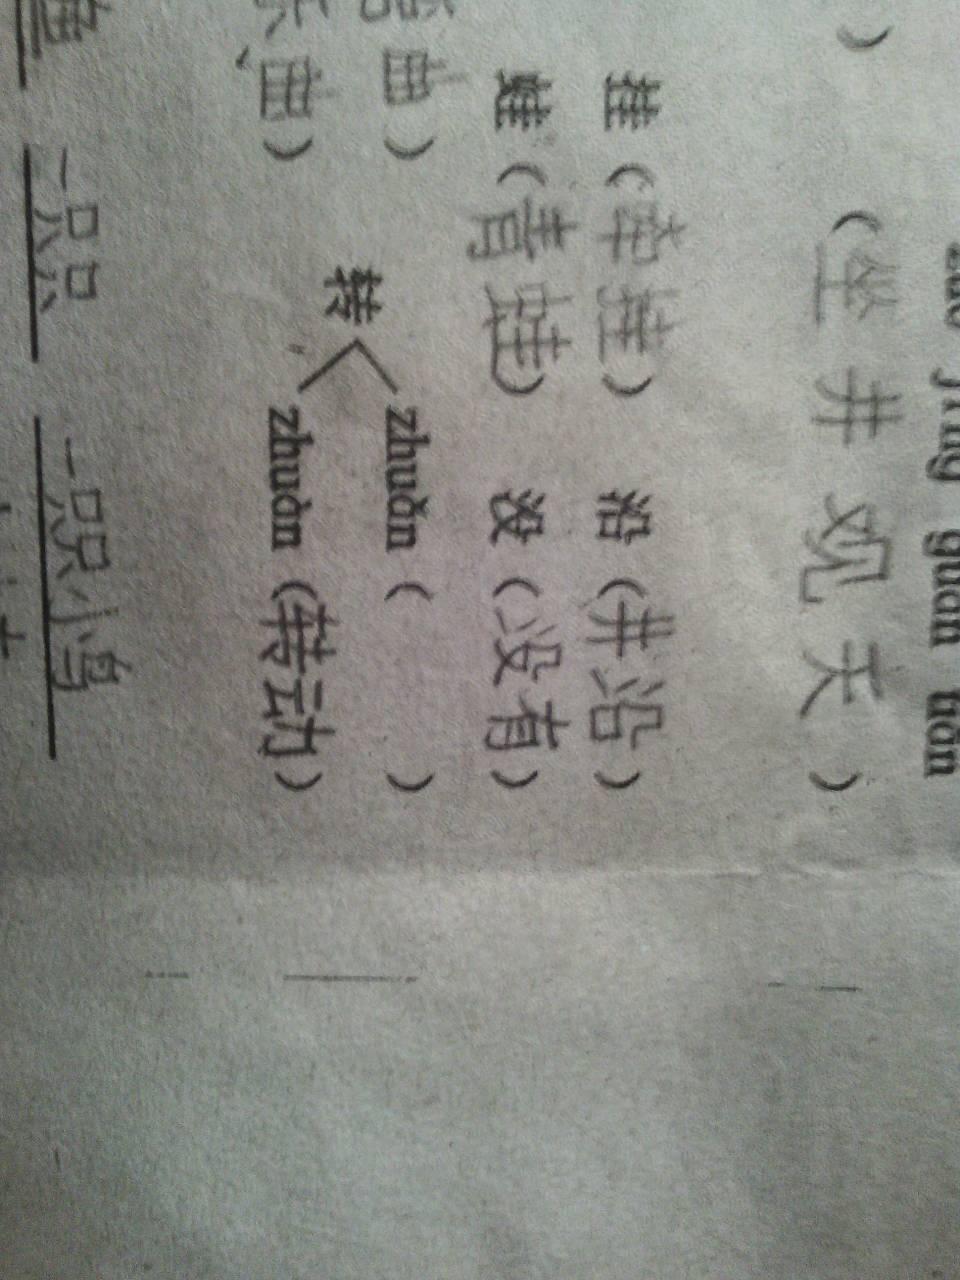 jǐng guān tiān
） （坐井观天）
挂（牵挂） 沿（井沿）
蛙（青蛙） 没（没有）
曲） zhuǎn（ ）
转
曲） zhuàn（转动）
一只只 一只小鸟